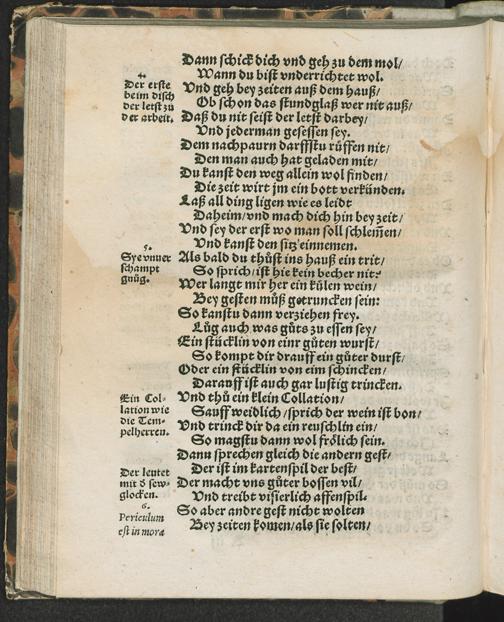 Dann schick dich vnd geh zu dem mol/
Wann du bist vnderrichtet wol.
4.
Der erste
beim disch
der letst zu
der arbeit.
Vnd geh bey zeiten auß dem hauß/
Ob schon das stundglaß wer nit auß/
Daß du nit seist der letst darbey/
Vnd jederman gesessen sey.
Dem nachpaurn darffstu rüffen nit/
Den man auch hat geladen mit/
Du kanst den weg allein wol finden/
Die zeit wirt jm ein bott verkünden.
Laß all ding ligen wie es leidt
Daheim/vnd mach dich hin bey zeit/
Vnd sey der erst wo man soll schlem̃en/
Vnd kanst den sitz einnemen.
5.
Sye vnuer
schampt
gnüg.
Als bald du thüst ins hauß ein trit/
So sprich/ist hie kein becher nit?
Wer langt mir her ein külen wein/
Bey gesten müß getruncken sein:
So kanstu dann verziehen frey.
Lüg auch was güts zu essen sey/
Ein stücklin von einr güten wurst/
So kompt dir drauff ein güter durst/
Oder ein stücklin von eim schincken/
Darauff ist auch gar lustig trincken.
Ein Col-
lation wie
die Tem-
pelherren.
Vnd thü ein klein Collation/
Sauff weidlich/sprich der wein ist bon/
Vnd trinck dir da ein reuschlin ein/
So magstu dann wol frölich sein.
Dann sprechen gleich die andern gest/
Der leutet
mit d sew-
glocken.
Der ist im kartenspil der best/
Der macht vns güter bossen vil/
Vnd treibt visierlich affenspil.
6.
Periculum
est in mora
So aber andre gest nicht wolten
Bey zeiten komen/als sie solten/